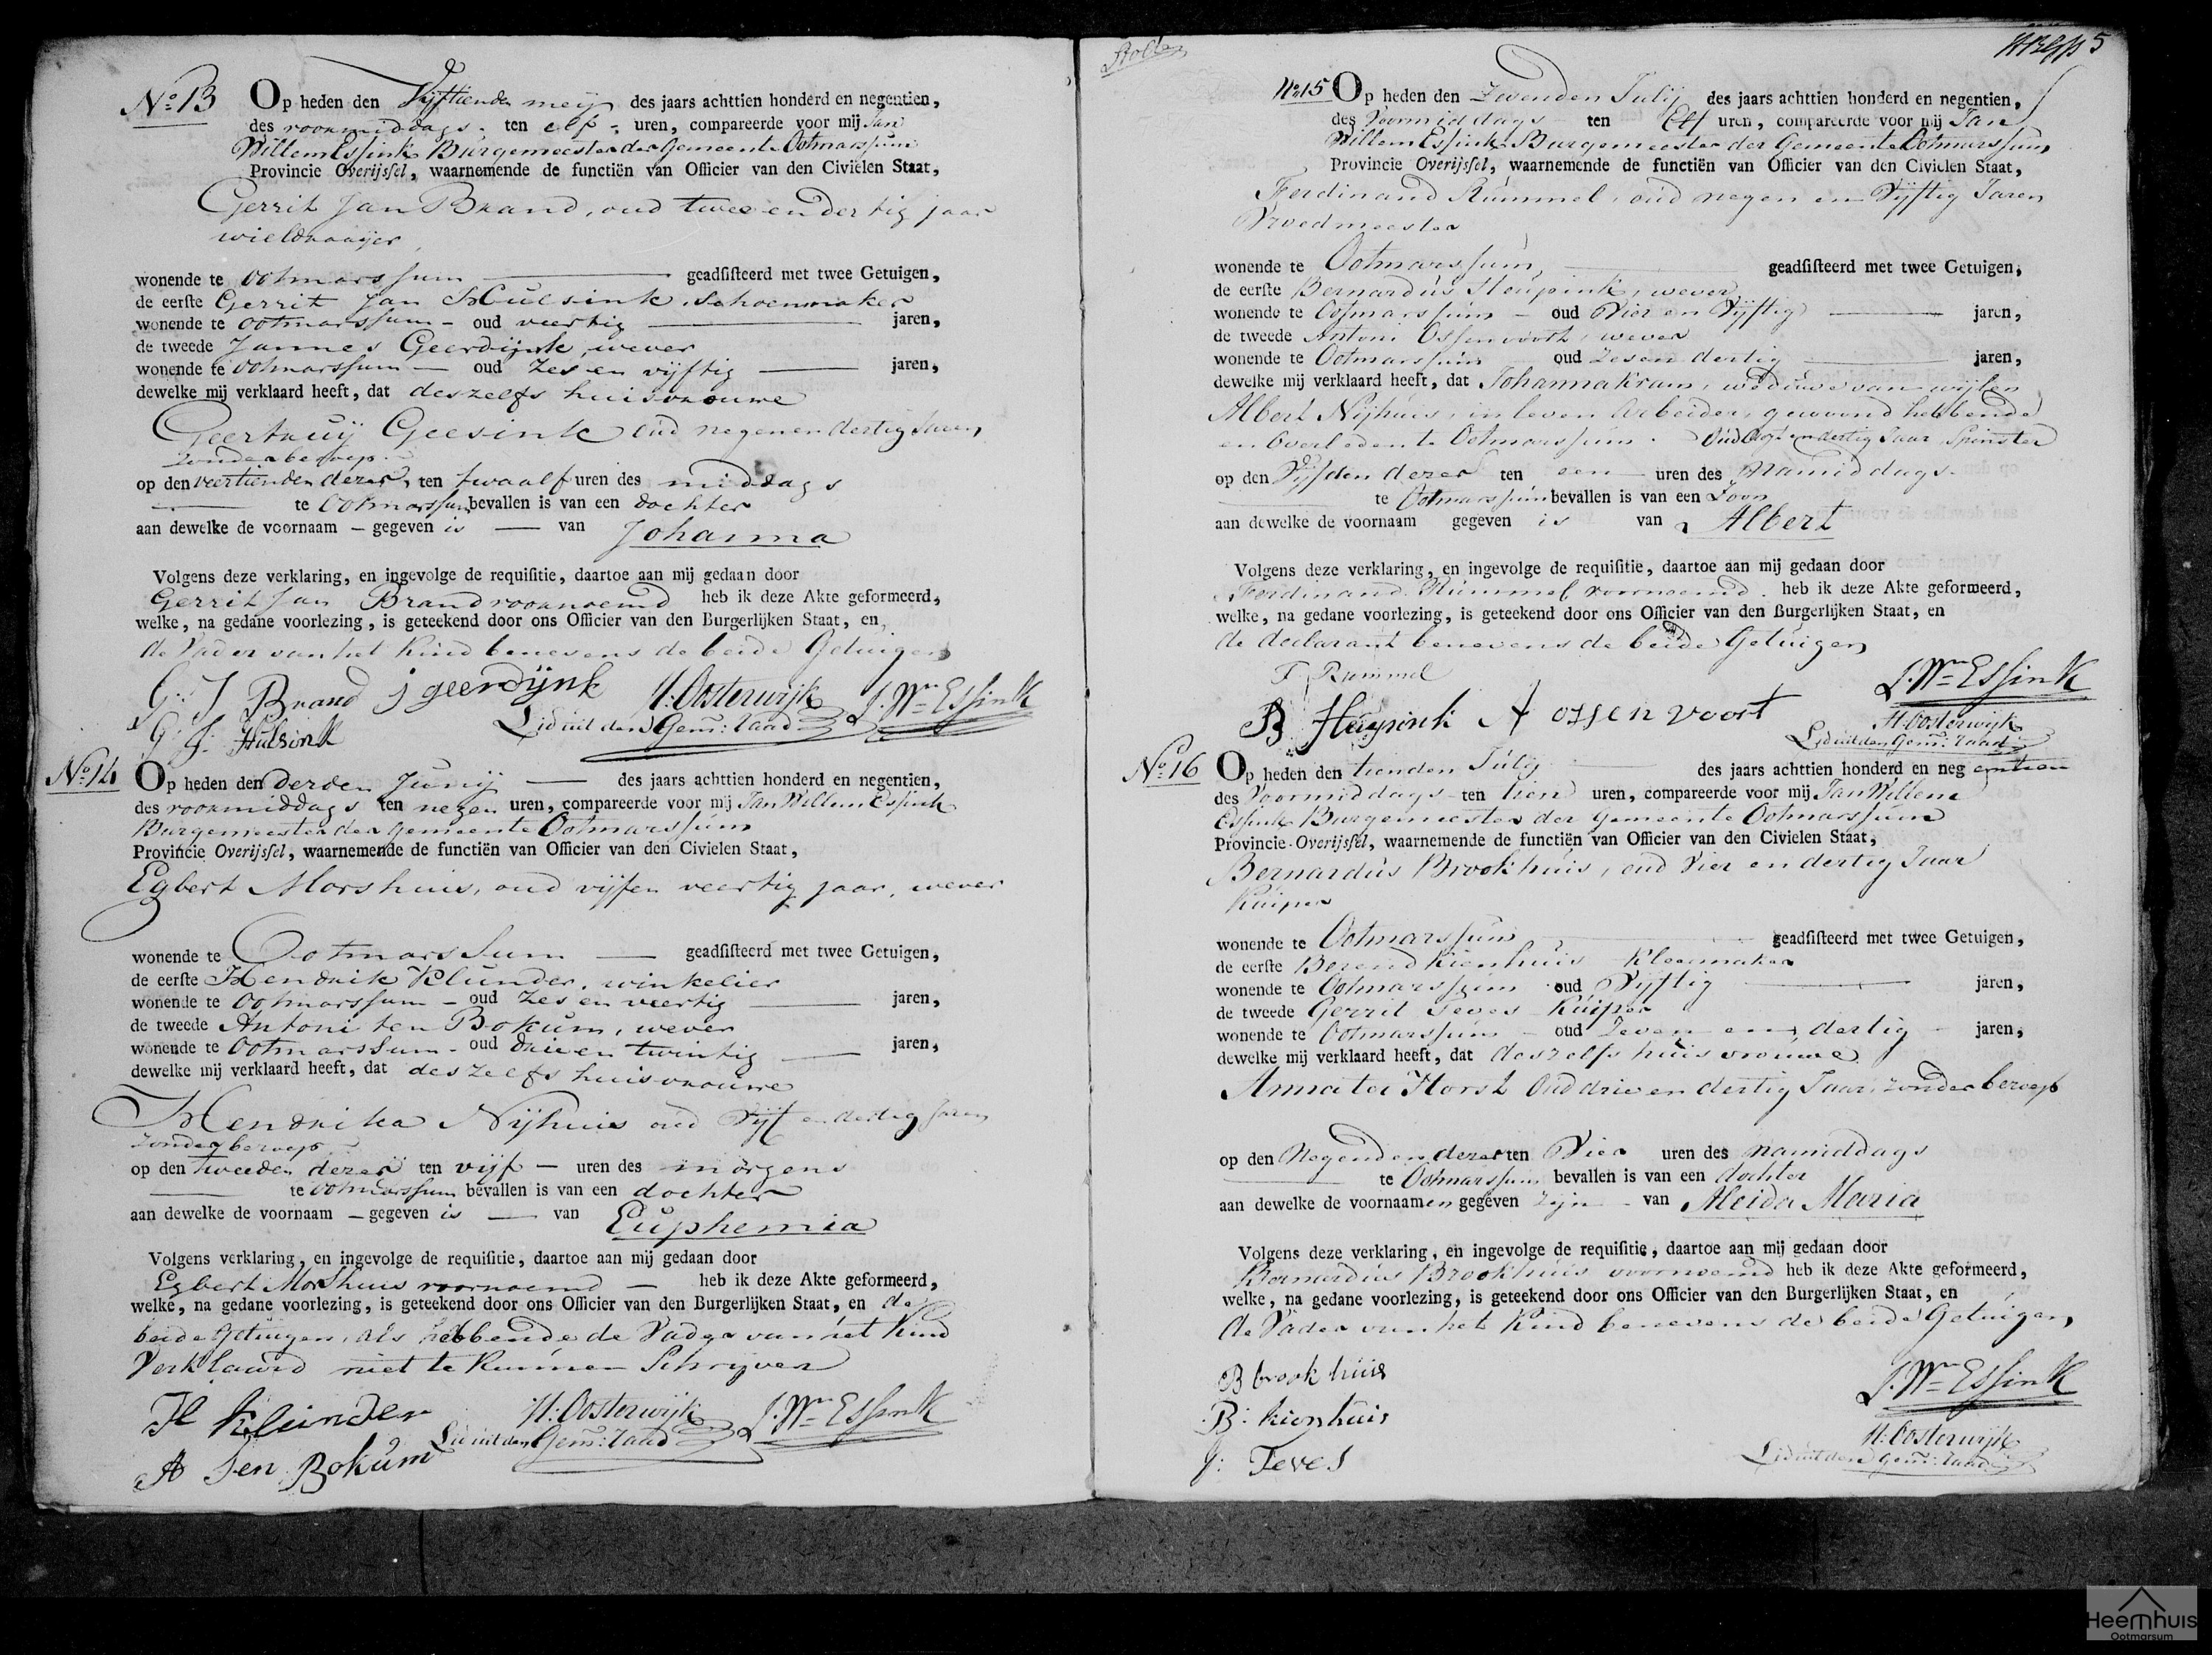 No. 13 Op heden den Vijftienden meij des jaars achttien honderd en negentien,
des voormiddags ten elf uren, compareerde voor mij Jan
Willem Essink Burgemeester der Gemeente Ootmarssum
Provincie Overijssel, waarnemende de functiën van Officier van den Civielen Staat,
Gerrit Jan Brand, oud twee en dertig jaar
wieldraaijer
wonende te Ootmarssum geadsisteerd met twee Getuigen,
de eerste Gerrit Jan Hulsink, schoenmaker
wonende te Ootmarssum - oud veertig jaren,
de tweede Jannes Geerdijnk, wever
wonende te Ootmarssum - oud Zes en vijftig jaren,
dewelke mij verklaard heeft, dat deszelfs huisvrouwe
Geertruij Geesink oud negen en dertig Jaren,
zonder beroep
op den veertienden dezer, ten twaalf uren des middags
te Ootmarssum bevallen is van een dochter
aan dewelke de voornaam - gegeven is - van Johanna
Volgens deze verklaring, en ingevolge de requisitie, daartoe aan mij gedaan door
Gerrit Jan Brand voornoemd heb ik deze Akte geformeerd,
welke, na gedane voorlezing, is geteekend door ons Officier van den Burgerlijken Staat, en
de Vader van het Kind benevens de beide Getuigen
G: J Brand j geerdijnk H: Oosterwijk J. Wm Essink
G: J: Hulsink Lid uit den Gem: raad
No. 14 Op heden den derden Junij des jaars achttien honderd en negentien,
des voormiddags ten negen uren, compareerde voor mij Jan Willem Essink
Burgemeester der Gemeente Ootmarssum
Provincie Overijssel, waarnemende de functiën van Officier van den Civielen Staat,
Egbert Morshuis, oud vijf en veertig jaar, wever
wonende te Ootmarssum geadsisteerd met twee Getuigen,
de eerste Hendrik Klunder, winkelier
wonende te Ootmarssum - oud Zes en veertig jaren,
de tweede Antoni ten Bokum, wever
wonende te Ootmarssum - oud drie en twintig jaren,
dewelke mij verklaard heeft, dat deszelfs huisvrouwe
Hendrika Nijhuis oud Vijf en dertig Jaren
zonder beroep
op den tweeden dezer ten vijf - uren des morgens
te Ootmarssum bevallen is van een dochter
aan dewelke de voornaam - gegeven is - van Euphemia
Volgens verklaring, en ingevolge de requisitie, daartoe aan mij gedaan door
Egbert Morshuis voornoemd heb ik deze Akte geformeerd,
welke, na gedane voorlezing, is geteekend door ons Officier van den Burgerlijken Staat, en de
beide Getuigen, als hebbende de Vader van het Kind
Verklaard niet te kunnen Schrijven
H Klunder H: Oosterwijk J. Wm Essink
A Ten Bokum Lid uit den Gem: raad
5
No. 15 Op heden den Zevenden Julij des jaars achttien honderd en negentien,
des Voormiddags ten Elf uren, compareerde voor mij Jan
Willem Essink Burgemeester der Gemeente Ootmarssum
Provincie Overijssel, waarnemende de functiën van Officier van den Civielen Staat,
Ferdinand Rummel, oud negen en Vijftig Jaren
Vroedmeester
wonende te Ootmarssum geadsisteerd met twee Getuigen,
de eerste Bernardus Heupink, wever
wonende te Ootmarssum - oud Vier en Vijftig jaren,
de tweede Antoni Ossenvoort, wever
wonende te Ootmarssum oud Zes en dertig jaren,
dewelke mij verklaard heeft, dat Johanna Kram, weduwe van wijlen
Albert Nijhuis, in leven Arbeider, gewoond hebbende
en Overleden te Ootmarssum. Oud Agt en dertig Jaar, Spinster
op den Vijfden dezer ten een uren des Namiddags
te Ootmarssum bevallen is van een Zoon
aan dewelke de voornaam gegeven is van Albert
Volgens deze verklaring, en ingevolge de requisitie, daartoe aan mij gedaan door
Ferdinand Rummel voornoemd heb ik deze Akte geformeerd,
welke, na gedane voorlezing, is geteekend door ons Officier van den Burgerlijken Staat, en
de declarant benevens de beide Getuigen
F Rummel J. Wm Essink
B Heupink A ossenvoort H: Oosterwijk
Lid uit den Gem: raad
No. 16 Op heden den tienden Julij des jaars achttien honderd en negentien
des Voormiddags ten tien uren, compareerde voor mij Jan Willem
Essink Burgemeester der Gemeente Ootmarssum
Provincie Overijssel, waarnemende de functiën van Officier van den Civielen Staat,
Bernardus Brookhuis, oud Vier en dertig Jaar
Kuiper
wonende te Ootmarssum geadsisteerd met twee Getuigen,
de eerste Berend Kienhuis Kleermaker
wonende te Ootmarssum oud Vijftig jaren,
de tweede Gerrit Teves Kuiper
wonende te Ootmarssum - oud Zeven en dertig jaren,
dewelke mij verklaard heeft, dat deszelfs huisvrouwe
Anna ter Horst Oud drie en dertig Jaar, zonder beroep
op den Negenden dezer ten Vier uren des namiddags
te Ootmarssum bevallen is van een dochter
aan dewelke de voornaamen gegeven zijn - van Aleida Maria
Volgens deze verklaring, en ingevolge de requisitie, daartoe aan mij gedaan door
Bernardus Brookhuis voornoemd heb ik deze Akte geformeerd,
welke, na gedane voorlezing, is geteekend door ons Officier van den Burgerlijken Staat, en
de Vader van het Kind benevens de beide Getuigen,
B brookhuis J. Wm Essink
B: kienhuis H: Oosterwijk
G: Teves Lid uit den Gem: raad
Heemhuis
Ootmarsum